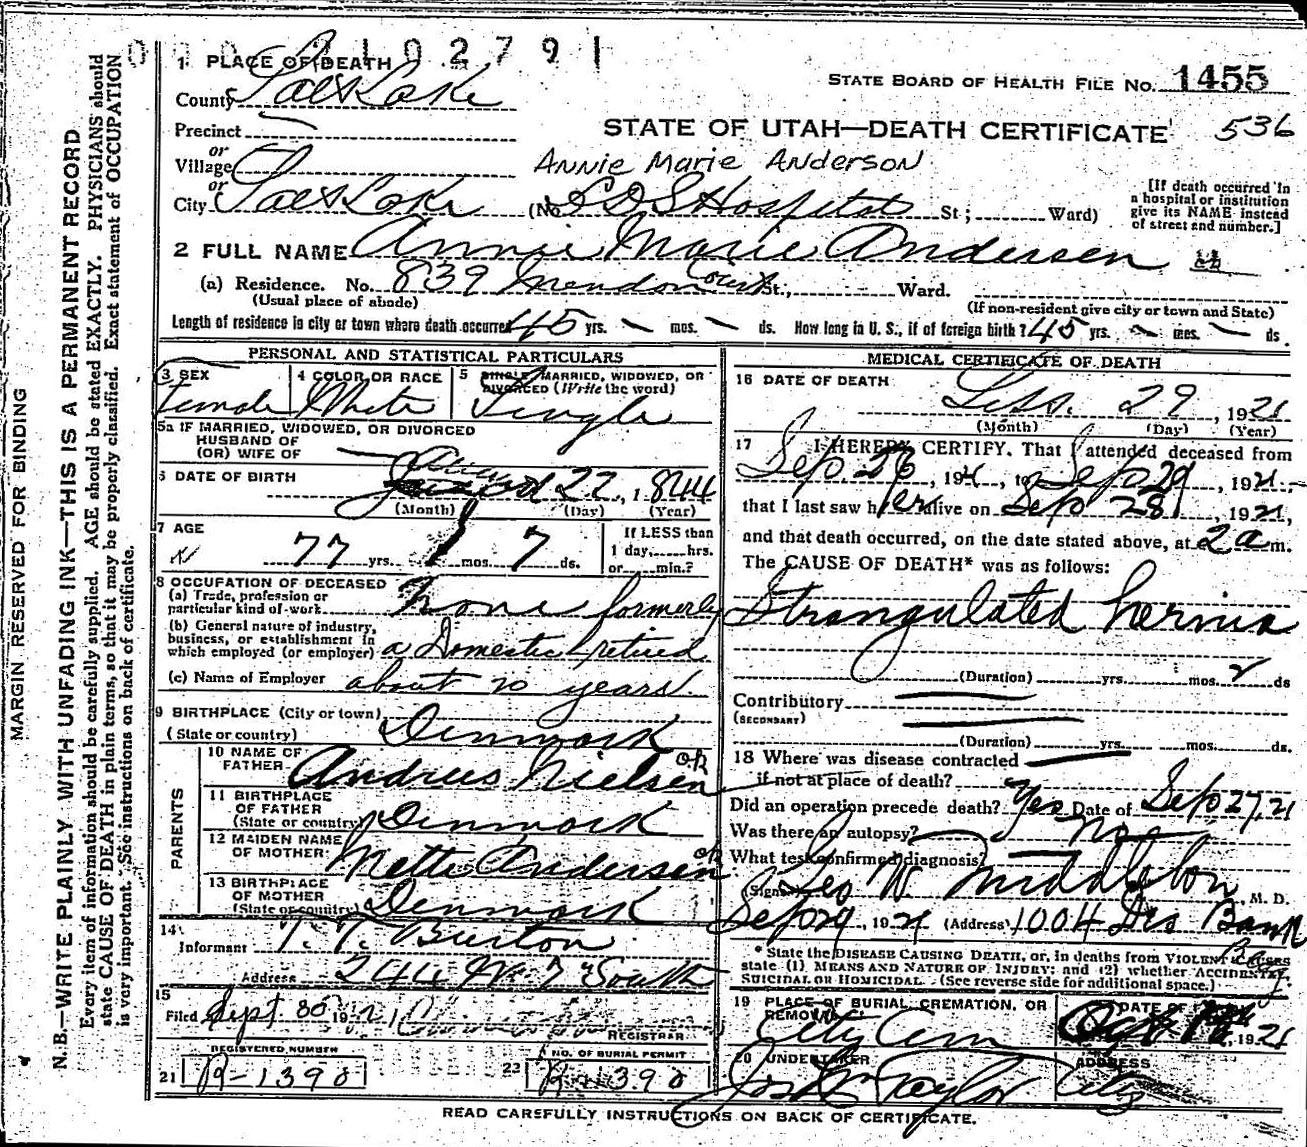 0 2 1 0 2 7 9 1
1 PLACE OF DEATH
STATE BOARD OF HEALTH FILE NO. 1455
County Salt Lake
Precinct
STATE OF UTAH—DEATH CERTIFICATE 536
or
Village
Annie Marie Anderson
or
City Salt Lake (No. L D S Hospital St; Ward)
[If death occurred in a hospital or institution give its NAME instead of street and number.]
2 FULL NAME Annie Marie Andersen
(a) Residence. No. 839 Mendon Court St., Ward.
(Usual place of abode) (If non-resident give city or town and State)
Length of residence in city or town where death occurred 45 yrs. — mos. — ds. How long in U. S., if of foreign birth? 45 yrs. — mos. — ds.
PERSONAL AND STATISTICAL PARTICULARS
3 SEX
Female
4 COLOR OR RACE
White
5 SINGLE, MARRIED, WIDOWED, OR DIVORCED (Write the word)
Single
5a IF MARRIED, WIDOWED, OR DIVORCED
HUSBAND OF
(OR) WIFE OF —
6 DATE OF BIRTH
22, 1844
(Month) (Day) (Year)
7 AGE
77 yrs. 1 mos. 7 ds.
If LESS than
1 day, hrs.
or min.?
8 OCCUPATION OF DECEASED
(a) Trade, profession or
particular kind of work None formerly
(b) General nature of industry,
business, or establishment in
which employed (or employer) a Domestic retired
(c) Name of Employer about 20 years.
9 BIRTHPLACE (City or town)
(State or country) Denmark
PARENTS
10 NAME OF
FATHER Andrus Nielsen ok
11 BIRTHPLACE
OF FATHER
(State or country) Denmark
12 MAIDEN NAME
OF MOTHER Mette Andersen ok
13 BIRTHPLACE
OF MOTHER
(State or country) Denmark
14
Informant T. T. Burton
Address 244 W 7 South
15
Filed Sept 30 1921
REGISTRAR
REGISTERED NUMBER
21 R-1390
NO. OF BURIAL PERMIT
22 R-1390
MEDICAL CERTIFICATE OF DEATH
16 DATE OF DEATH
Sep. 29, 1921
(Month) (Day) (Year)
17 I HEREBY CERTIFY, That I attended deceased from
Sep. 26, 1921, to Sep 29, 1921,
that I last saw her alive on Sep 28, 1921,
and that death occurred, on the date stated above, at 2 a m.
The CAUSE OF DEATH* was as follows:
Strangulated hernia
(Duration) yrs. mos. 2 ds
Contributory
(SECONDARY)
(Duration) yrs. mos. ds.
18 Where was disease contracted
if not at place of death?
Did an operation precede death? Yes Date of Sep 27, 21
Was there an autopsy? No
What test confirmed diagnosis?
(Signed) Geo W Middleton, M. D.
Sep 29, 1921 (Address) 1004 Des Bank
* State the DISEASE CAUSING DEATH, or, in deaths from VIOLENT CAUSES
state (1) MEANS AND NATURE OF INJURY; and (2) whether ACCIDENTAL,
SUICIDAL OR HOMICIDAL. (See reverse side for additional space.)
19 PLACE OF BURIAL, CREMATION, OR
REMOVAL
City Cem
DATE OF
1921
20 UNDERTAKER
Jos Wm Taylor
ADDRESS
City
READ CAREFULLY INSTRUCTIONS ON BACK OF CERTIFICATE.
MARGIN RESERVED FOR BINDING
N. B.—WRITE PLAINLY WITH UNFADING INK—THIS IS A PERMANENT RECORD
Every item of information should be carefully supplied. AGE should be stated EXACTLY. PHYSICIANS should
state CAUSE OF DEATH in plain terms, so that it may be properly classified. Exact statement of OCCUPATION
is very important. See instructions on back of certificate.